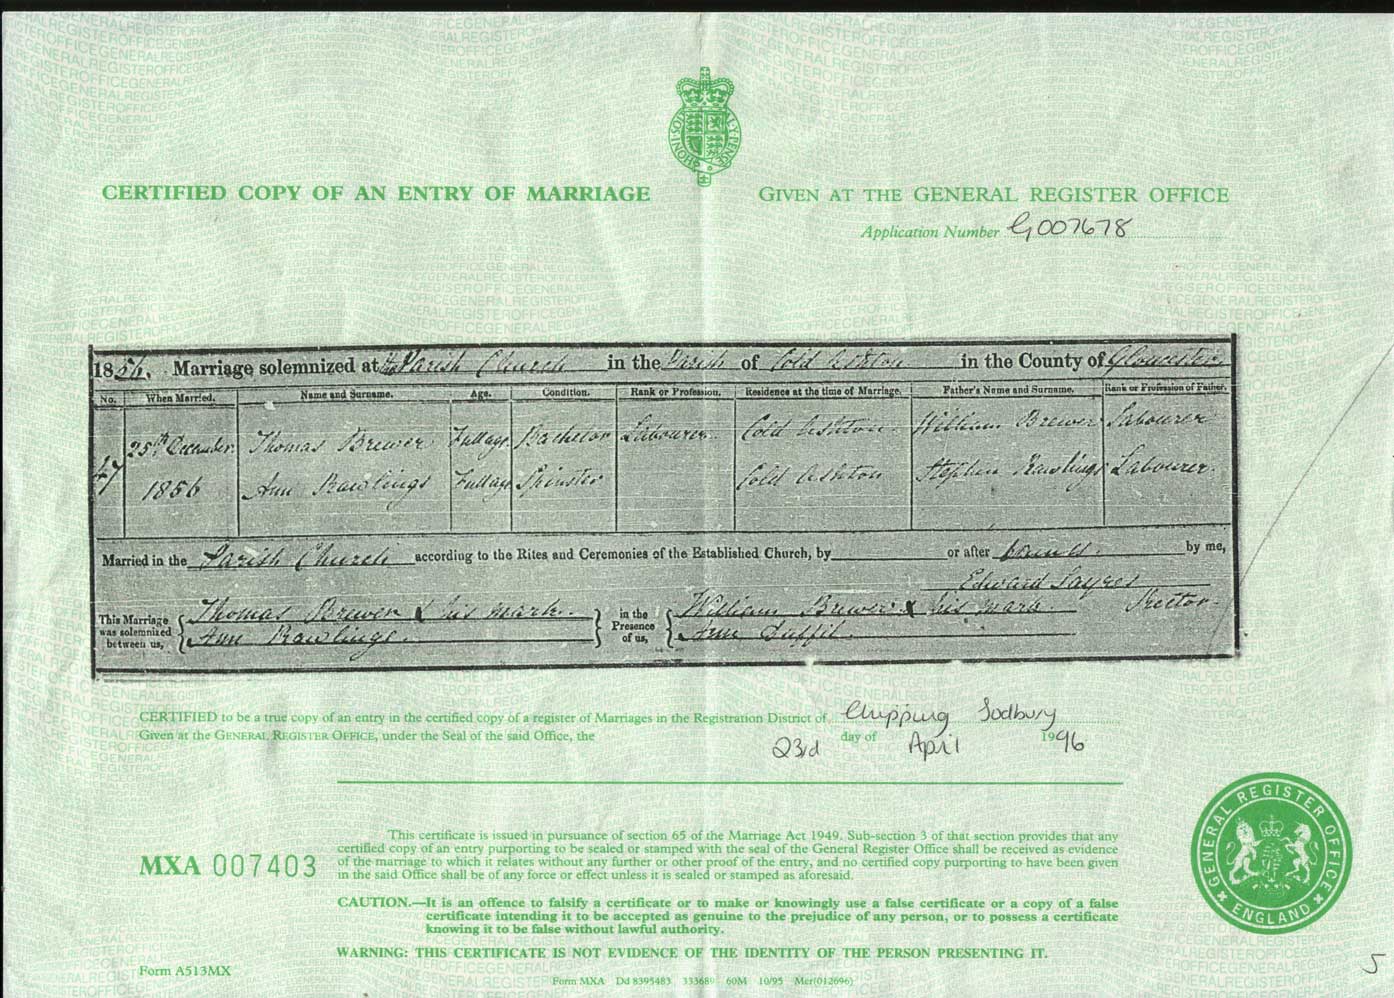 HONI·SOIT·QUI·MAL·Y·PENSE
CERTIFIED COPY OF AN ENTRY OF MARRIAGE
GIVEN AT THE GENERAL REGISTER OFFICE
Application Number G007678
1856. Marriage solemnized at the Parish Church in the Parish of Cold Ashton in the County of Gloucester
No. When Married. Name and Surname. Age. Condition. Rank or Profession. Residence at the time of Marriage. Father's Name and Surname. Rank or Profession of Father.
47 25th December Thomas Brewer Full age Bachelor Labourer Cold Ashton William Brewer Labourer
1856 Ann Rawlings Full age Spinster Cold Ashton Stephen Rawlings Labourer
Married in the Parish Church according to the Rites and Ceremonies of the Established Church, by or after banns. by me,
Edward Sayres
Rector
This Marriage was solemnized between us, Thomas Brewer X his mark. in the Presence of us, William Brewer X his mark.
Ann Rawlings. Ann
CERTIFIED to be a true copy of an entry in the certified copy of a register of Marriages in the Registration District of Chipping Sodbury
Given at the GENERAL REGISTER OFFICE, under the Seal of the said Office, the 23rd day of April 1996
This certificate is issued in pursuance of section 65 of the Marriage Act 1949. Sub-section 3 of that section provides that any
certified copy of an entry purporting to be sealed or stamped with the seal of the General Register Office shall be received as evidence
of the marriage to which it relates without any further or other proof of the entry, and no certified copy purporting to have been given
in the said Office shall be of any force or effect unless it is sealed or stamped as aforesaid.
MXA 007403
CAUTION.—It is an offence to falsify a certificate or to make or knowingly use a false certificate or a copy of a false
certificate intending it to be accepted as genuine to the prejudice of any person, or to possess a certificate
knowing it to be false without lawful authority.
WARNING: THIS CERTIFICATE IS NOT EVIDENCE OF THE IDENTITY OF THE PERSON PRESENTING IT.
GENERAL REGISTER OFFICE
ENGLAND
Form A513MX
Form MXA Dd 8395483 60M 10/95 Mcr(012696)
5